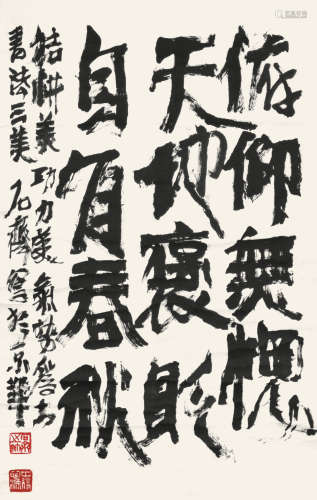 俯仰無愧
天地褒貶
自有春秋
結構美功力美氣勢
書法三美石齊寫於京華